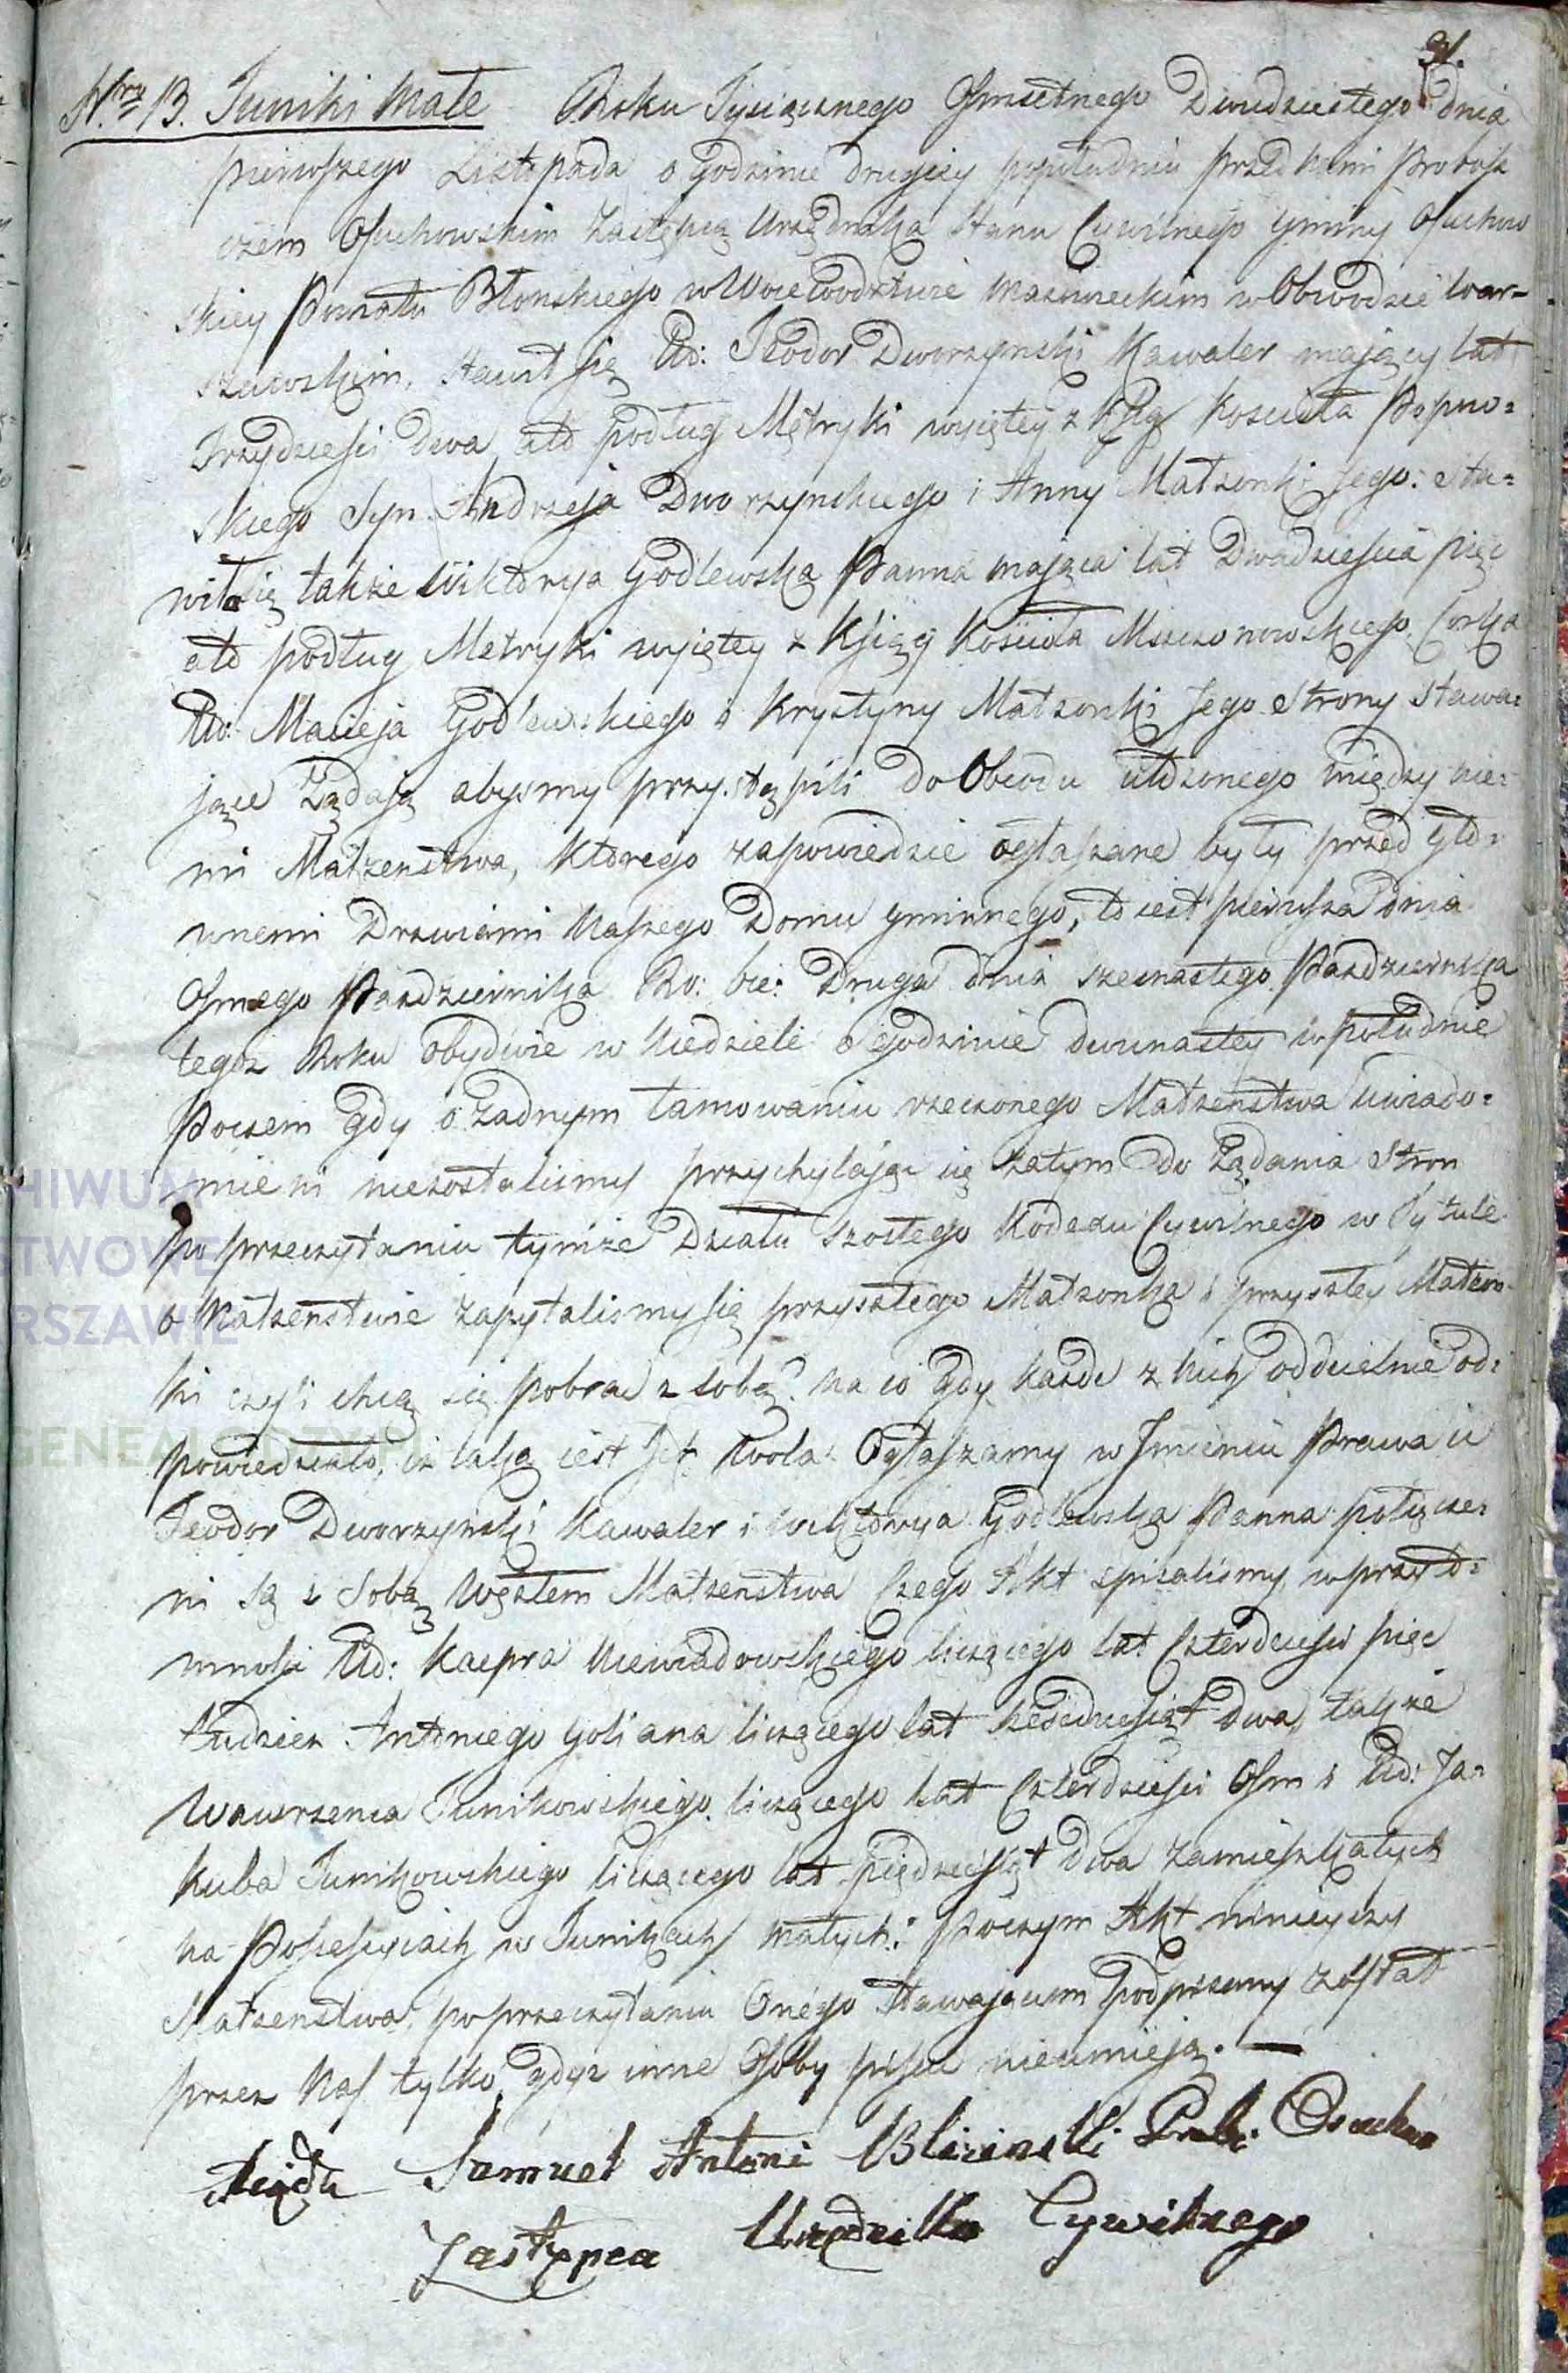 31.
Nro 13. Tuniki Małe Roku Tysiącznego Osmsetnego Dwudziestego dnia
pierwszego Listopada o godzinie drugiey popołudniu przed nami Probosz
czem Osuchowskim Zastępcą Urzędnika Stanu Cywilnego gminy Osuchow
skiey Powiatu Błonskiego w Woiewodztwie Mazowieckim w Obwodzie War-
szawskim, stawił się Ur: Teodor Dworzynski Kawaler maiący lat
Trzydziesci dwa, ato podług Metryki wyiętey z Ksiąg Koscioła
skiego Syn Andrzeja Dworzynskiego i Anny Małzonki Jego: Sta=
wiła się także Wiktorya Godlewska Panna maiąca lat Dwadziescia pięc
ato podług Metryki wyiętey z Xsiąg Koscioła Mszczonowskiego Corka
Ur: Macieja Godlewskiego i Krystyny Małzonki Jego Strony Stawa=
jące Żądaią abysmy przystąpili do Obrzędu ułozonego między nie=
mi Małzenstwa, którego zapowiedzie ogłaszane były przed głó=
wnemi Drzwiami Naszego Domu gminnego, to iest pierwsza dnia
Osmego Pazdziernika Ro: bie: Druga dnia Pazdziernika
tegoz Roku obydwie w Niedziele o godzinie dwunastey w południe
Poczem gdy o zadnym tamowaniu rzeczonego Małzenstwa uwiado=
mieni niezostalismy przychylając się zatym do Żądania Stron
po przeczytaniu tymże Działu szostego Kodexu Cywilnego w Tytule
o Małzenstwie zapytalismy się przyszłego Małzonka i przyszłey Małzon=
ki czyli chcą się pobrac z sobą? na co gdy kazde z nich oddzielnie od=
powiedziało, iz taka iest Ich Wola: Ogłaszamy w Jmieniu Prawa iż
Teodor Dworzyński Kawaler i Wiktorya Godlewska Panna połącze=
ni są z Sobą Węzłem Małzenstwa Czego Akt spisalismy w przyto=
mnosci Ur: Kacpra Niewiadowskiego liczącego lat Czterdziesci pięc
tudziez Antoniego Goliana liczącego lat szescdziesiąt dwa, także
Wawrzenca Tunikowskiego liczącego lat Czterdziesci Osm i Ur: Ja=
kuba Tunikowskiego liczącego lat pięcdziesiąt Dwa zamieszkałych
na Possessyiach w Tunikach małych: Poczym Akt ninieyszy
Małzenstwa, po przeczytaniu Onego Stawającem podpisany został
przez Nas tylko gdyz inne Osoby pisac nieumieją. —
Xiądz Samuel Antoni Blizinski Prob: Osuchow
Zastępca Urzędnika Cywilnego
HIWUM
STWOWE
RSZAWIE
GENEALODZY.PL